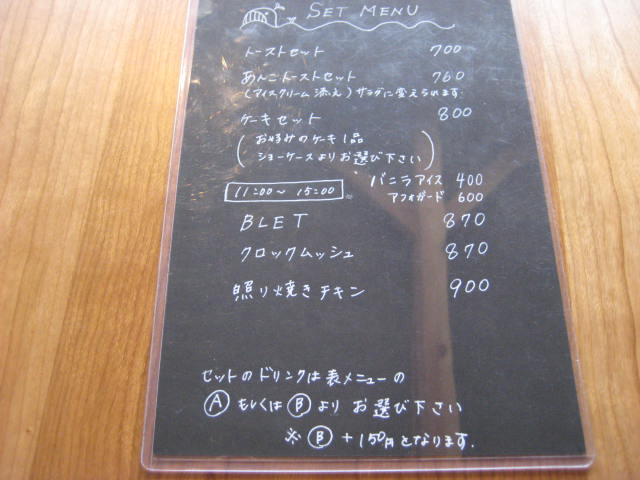 SET MENU
トーストセット 700
あんこトーストセット 760
(アイスクリーム添え)サラダに変えられます.
ケーキセット 800
(お好みのケーキ1品
ショーケースよりお選び下さい)
バニラアイス 400
11:00〜15:00 アフォガード 600
BLET 870
クロックムッシュ 870
照り焼きチキン 900
セットのドリンクは表メニューの
Ⓐもしくは Ⓑより お選び下さい
※Ⓑ +150円となります.